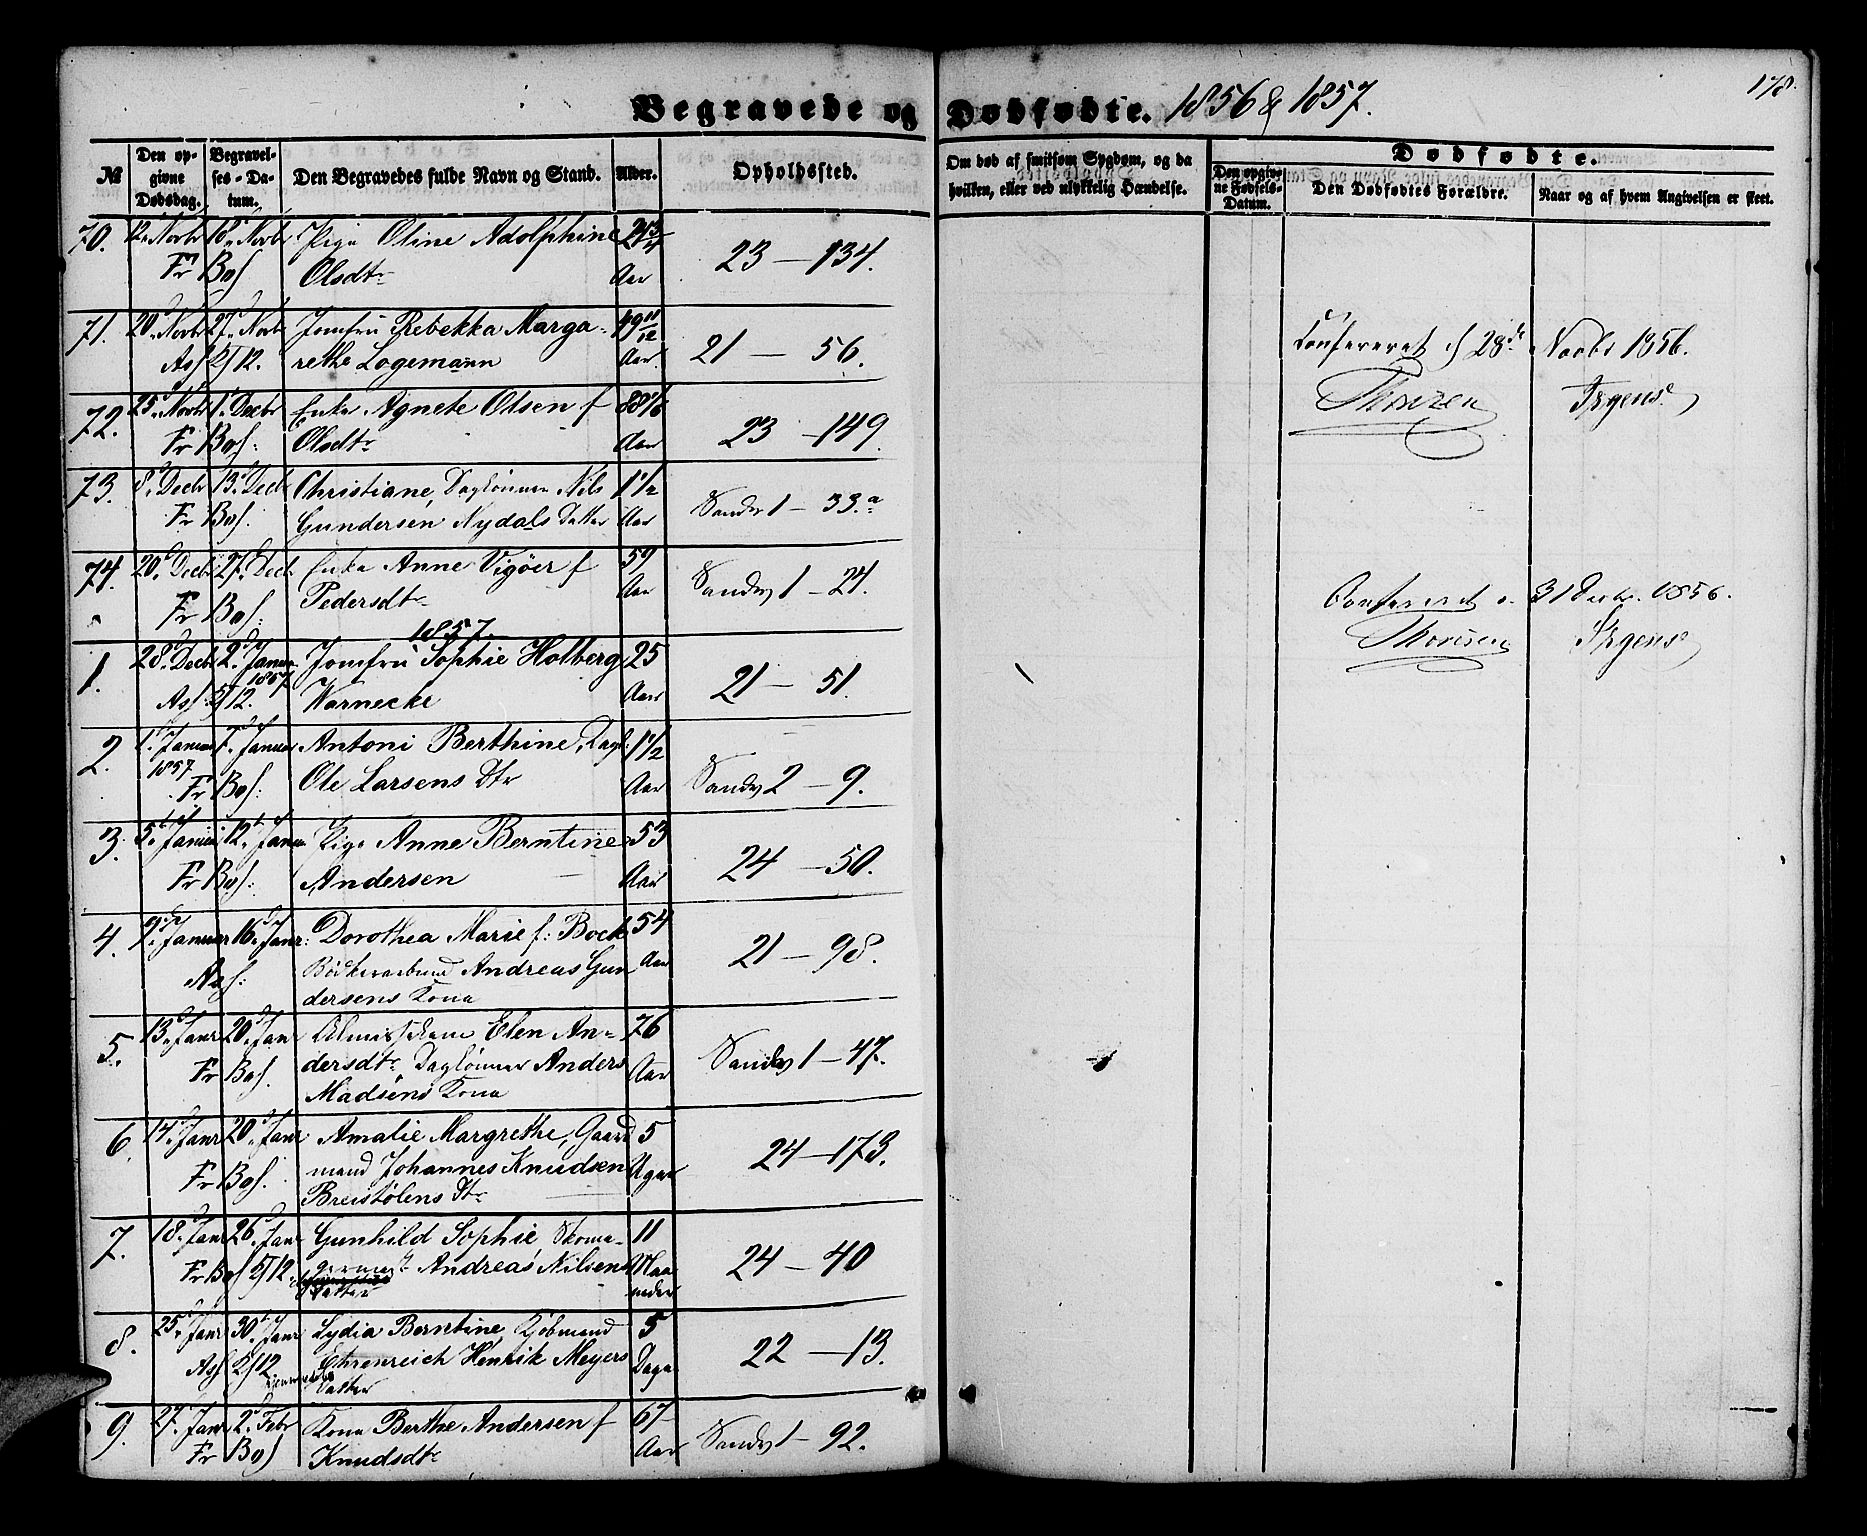 Begravede og Dødfødte. 1856 & 1857.
178.
№
Den opgivne Dødsdag.
Begravelses-Datum.
Den Begravedes fulde Navn og Stand.
Alder.
Opholdssted.
Om død af smitsom Sygdom, og da hvilken, eller ved ulykkelig Hændelse.
Dødfødte.
Den opgivne Fødsels-Datum.
Den Dødfødtes Forældre.
Naar og af hvem Angivelsen er skeet.
70. 12. Novbr 18. Novbr Pige Oline Adolphine
Fr Bos. Olsdtr Aar 23 — 134.
71. 20. Novbr 27. Novbr Jomfru Rebekka Marga- 49 11/12
rethe Logemann Aar 21 — 56.
Confereret d 28de Novbr 1856.
Thorsen Irgens
72. 25. Novbr 1. Decbr Enke Agnete Olsen f 88 1/6
Fr Bos: Olsdtr Aar 23 — 149
73. 8. Decbr 13. Decbr Christiane, Daglønner Nils 1 1/2
Fr Bos. Gundersen Nydals Datter Aar Sandv 1 — 33.a
74. 20. Decbr 27. Decbr Enke Anne Vigøer f 59
Fr Bos: Pedersdtr Aar Sandv 1 — 24.
Confereret d. 31 Decbr. 1856.
Thorsen Irgens
1857.
1. 28. Decbr 2. Januar 1857 Jomfru Sophie Holberg 25
Warnecke Aar 21 — 51.
2. 1. Januar 1857 7. Januar Antoni Berthine, Dagl: 1 1/2
Fr Bos: Ole Larsens Dtr Aar Sandv 2 — 9.
3. 5. Januar 12. Januar Pige Anne Berntine 53
Fr Bos: Andersen Aar 24 — 50.
4. 9. Januar 16. Janr: Dorothea Marie f: Bock 54
Bødkersvend Andreas Gun Aar 21 — 98.
dersens Kone
5. 13. Janr 20. Janr Elen An- 76
Fr Bos. dersdtr Daglønner Anders Aar Sandv 1 — 47.
Madsens Kone
6. 14. Janr 20. Janr Amalie Margrethe, Gaard 5
Fr Bos. mand Johannes Knudsen Uger 24 — 173.
Breistølens Dtr
7. 18. Janr 26. Janr Gunhild Sophie Skoma- 11
Fr Bos germestr Andreas Nilsens Maa 24 — 40
Datter neder
8. 25. Janr 30. Janr Lydia Berntine, Kjøbmand 5
Ehrenreich Henrik Meyers Dage 22 — 13.
Datter
9. 27. Janr 2. Febr Kone Berthe Andersen f 67
Fr Bos Knudsdtr Aar Sandv 1 — 92.